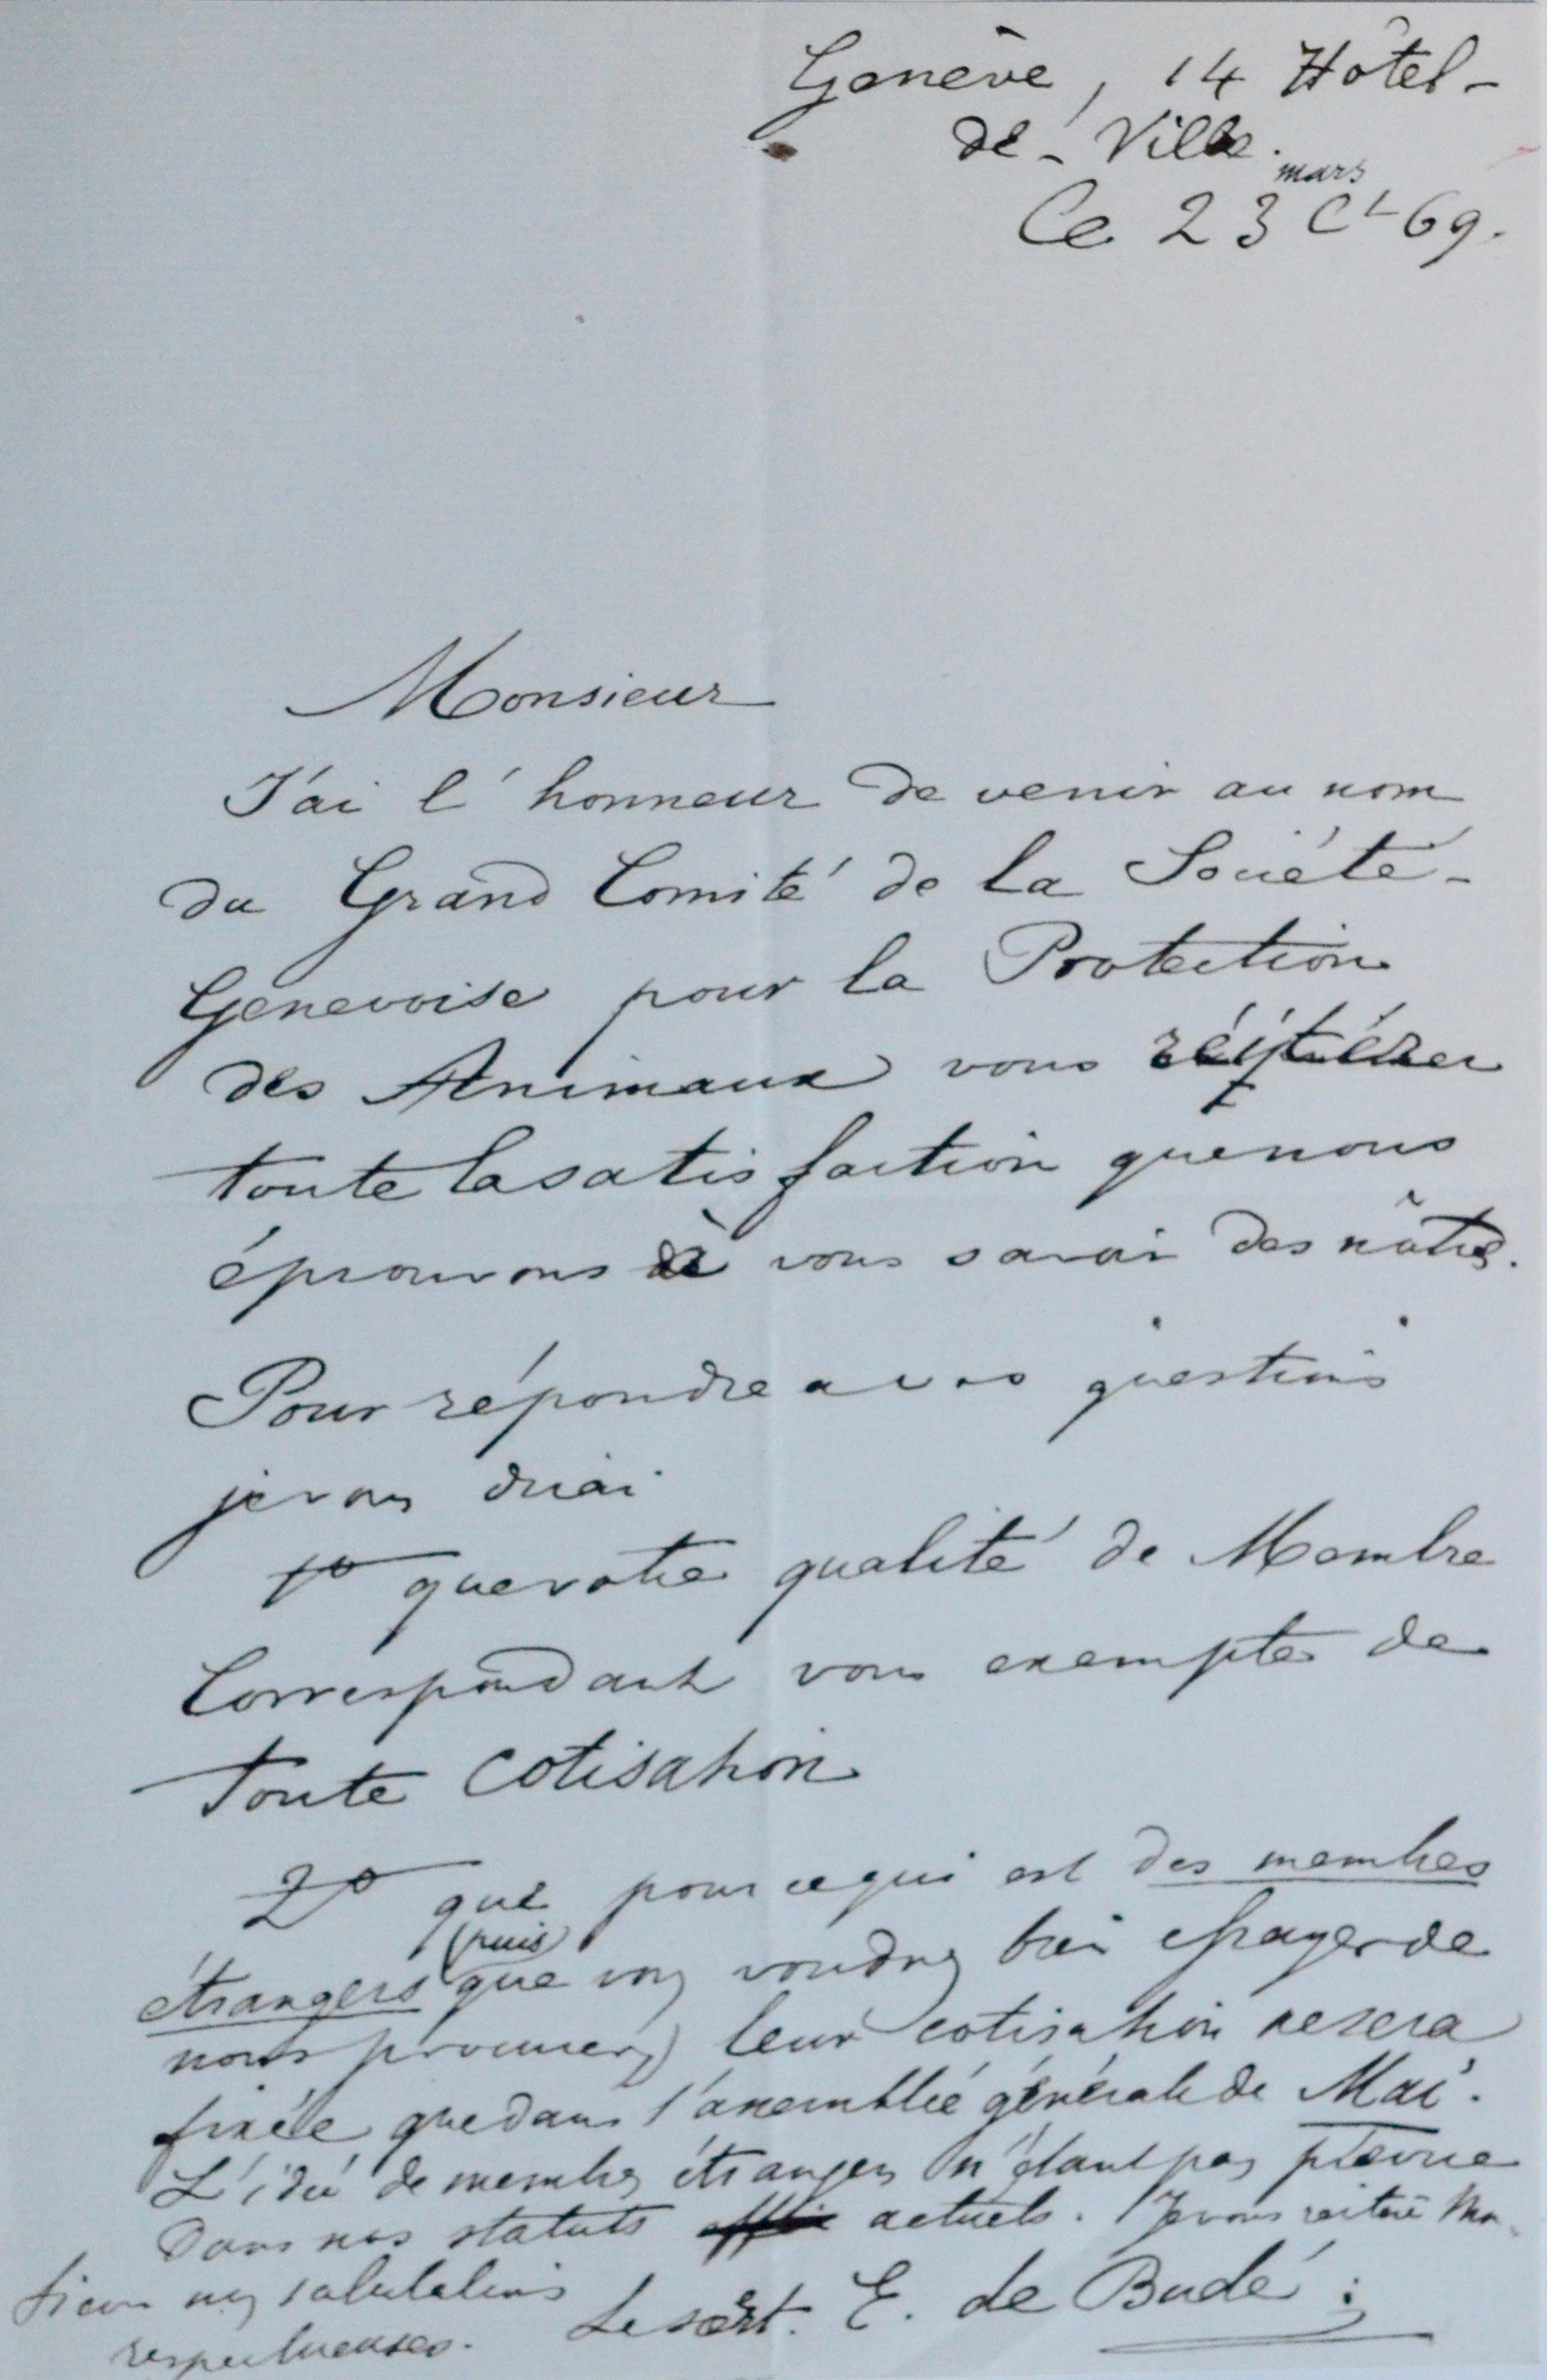 Genève, 14 Hôtel-
de-Ville.
mars
Ce 23 Ct 69.
Monsieur
J'ai l'honneur de venir au nom
du Grand Comité de la Société-
Genevoise pour la Protection
des Animaux vous réitérer
toute la satisfaction que nous
éprouvons à vous savoir des nôtres.
Pour répondre a vos questions
je vous dirai
1o que votre qualité de Membre
Correspondant vous exempte de
toute cotisation
2o que pour ce qui est des membres
(puis
étrangers que vous voudrez bien essayer de
nous procurer) leur cotisation ne sera
fixée que dans l'assemblée générale de Mai.
L'idée de membres étrangers n'étant pas prévue
dans nos statuts actuels. Je vous réitère Mon-
sieur mes salutations
respectueuses.
Le secrét. E. de Budé